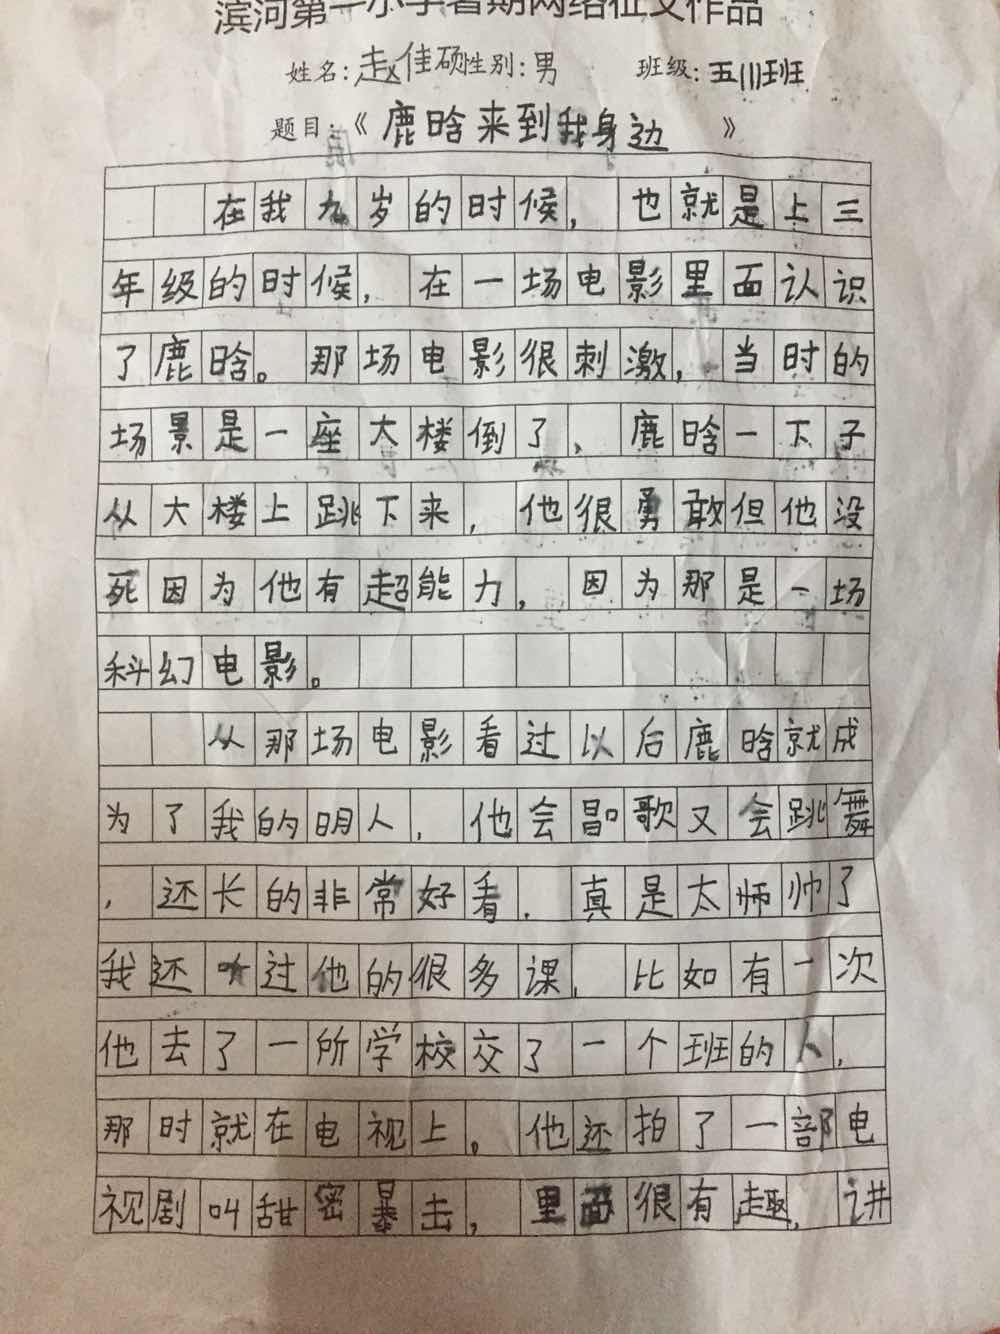 滨河第一小学暑期网络征文作品
姓名:赵佳硕性别:男 班级:五(1)班
题目:《鹿晗来到我身边》
在我九岁的时候,也就是上三
年级的时候,在一场电影里面认识
了鹿晗。那场电影很刺激,当时的
场景是一座大楼倒了,鹿晗一下子
从大楼上跳下来,他很勇敢但他没
死因为他有超能力,因为那是一场
科幻电影。
从那场电影看过以后鹿晗就成
为了我的明人,他会唱歌又会跳舞
,还长的非常好看.真是太师帅了
我还听过他的很多课,比如有一次
他去了一所学校交了一个班的人,
那时就在电视上。他还拍了一部电
视剧叫甜密暴击,里面很有趣,讲